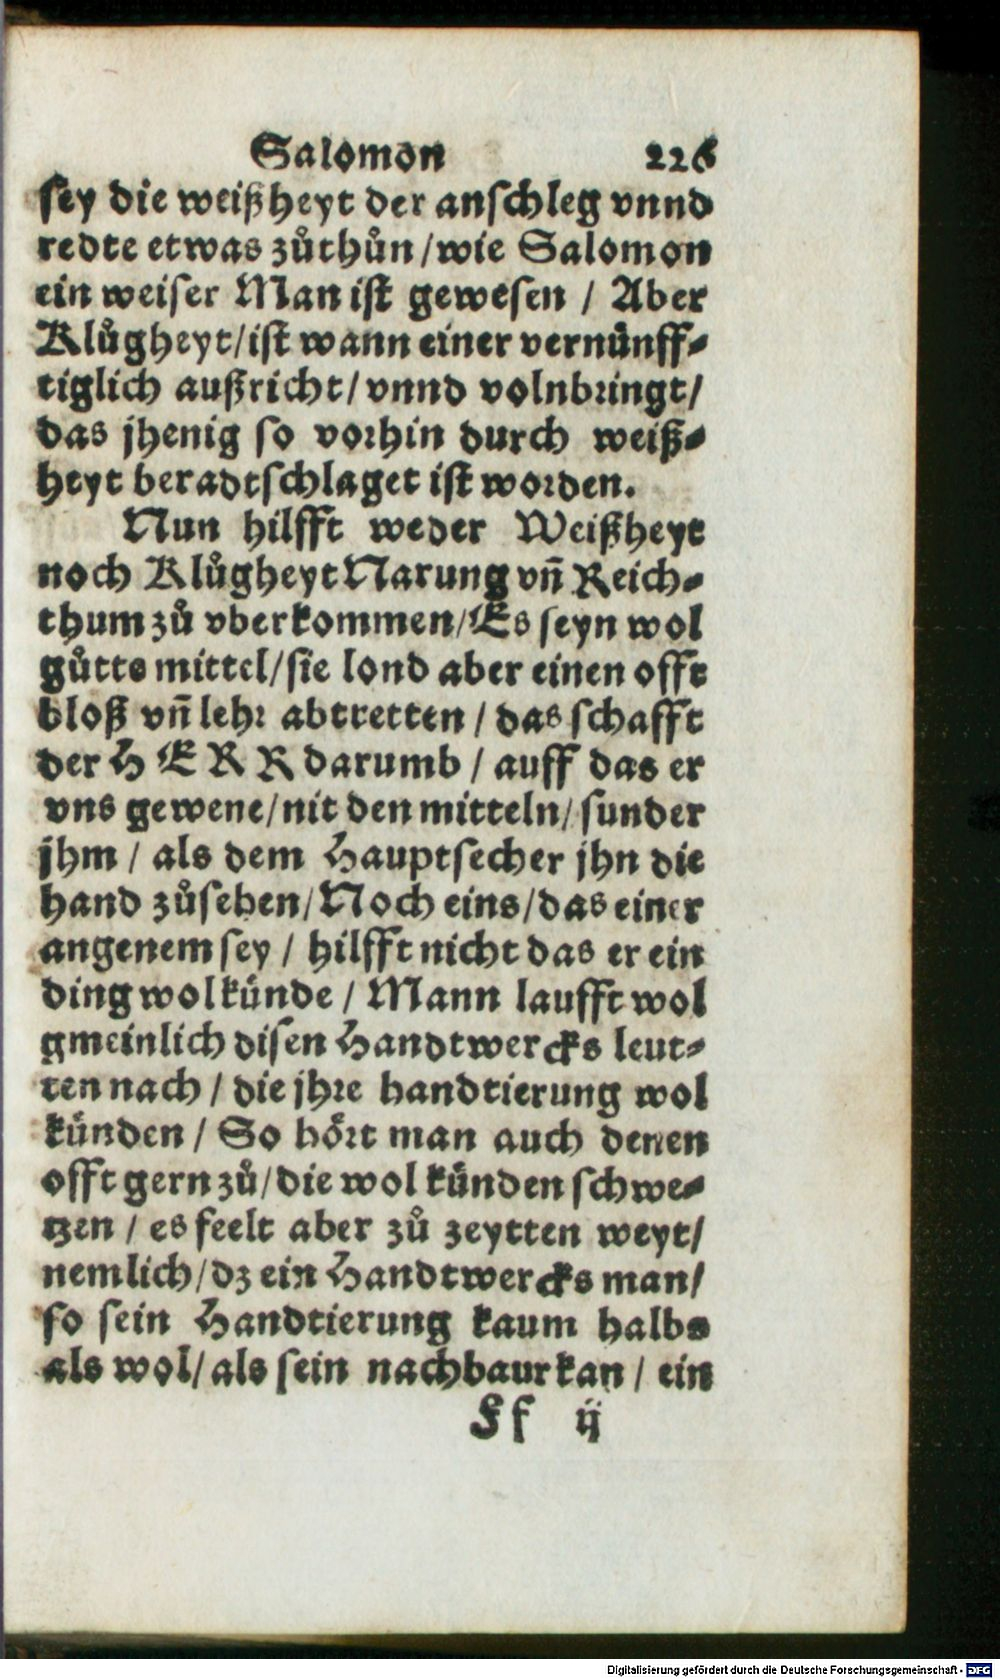 Salomon 226
sey die weißheyt der anschleg vnnd
redte etwas zůthůn / wie Salomon
ein weiser Man ist gewesen / Aber
Klůgheyt / ist wann einer vernünff⸗
tiglich außricht / vnnd volnbringt /
das jhenig so vorhin durch weiß⸗
heyt beradtschlaget ist worden.
Nun hilfft weder Weißheyt
noch Klůgheyt Narung vñ Reich⸗
thum zů vberkommen / Es seyn wol
gůtte mittel / sie lond aber einen offt
bloß vñ lehr abtretten / das schafft
der HERR darumb / auff das er
vns gewene / nit den mitteln / sunder
jhm / als dem Hauptsecher jhn die
hand zůsehen / Noch eins / das einer
angenem sey / hilfft nicht das er ein
ding wol künde / Mann laufft wol
gmeinlich disen Handtwercks leut⸗
ten nach / die jhre handtierung wol
künden / So hört man auch denen
offt gern zů / die wol künden schwe⸗
tzen / es feelt aber zů zeytten weyt /
nemlich / dz ein Handtwercks man /
so sein Handtierung kaum halbs
als wol / als sein nachbaur kan / ein
Ff ij
Digitalisierung gefördert durch die Deutsche Forschungsgemeinschaft - DFG